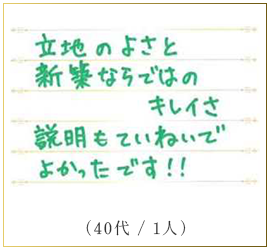 立地のよさと
新築ならではの
キレイさ
説明もていねいで
よかったです!!
(40代 / 1人)